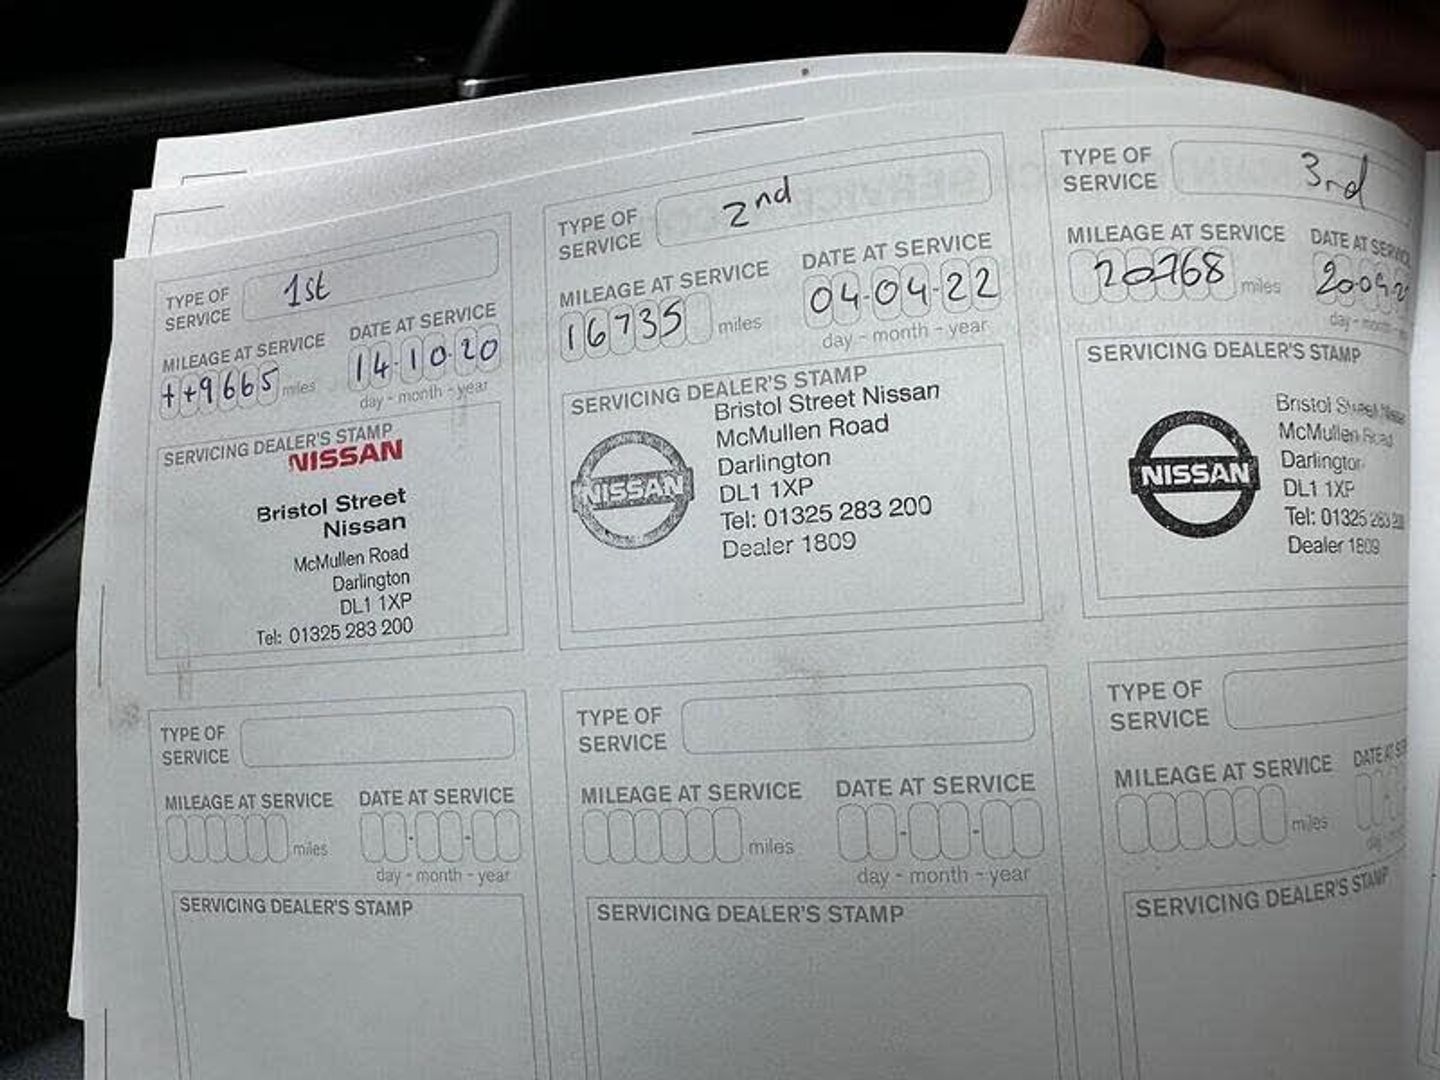 TYPE OF
SERVICE
1st
MILEAGE AT SERVICE
9665 miles
DATE AT SERVICE
14-10-20
day - month - year
SERVICING DEALER'S STAMP
NISSAN
Bristol Street
Nissan
McMullen Road
Darlington
DL1 1XP
Tel: 01325 283 200
TYPE OF
SERVICE
2nd
MILEAGE AT SERVICE
16735 miles
DATE AT SERVICE
04-04-22
day - month - year
SERVICING DEALER'S STAMP
NISSAN
Bristol Street Nissan
McMullen Road
Darlington
DL1 1XP
Tel: 01325 283 200
Dealer 1809
TYPE OF
SERVICE
3rd
MILEAGE AT SERVICE
20768 miles
DATE AT SERVICE
day - month
SERVICING DEALER'S STAMP
NISSAN
Bristol Street Nissan
McMullen Road
Darlington
DL1 1XP
Tel: 01325 283
Dealer 1809
TYPE OF
SERVICE
MILEAGE AT SERVICE
miles
DATE AT SERVICE
day - month - year
SERVICING DEALER'S STAMP
TYPE OF
SERVICE
MILEAGE AT SERVICE
miles
DATE AT SERVICE
day - month - year
SERVICING DEALER'S STAMP
TYPE OF
SERVICE
MILEAGE AT SERVICE
miles
DATE AT
SERVICING DEALER'S STAMP